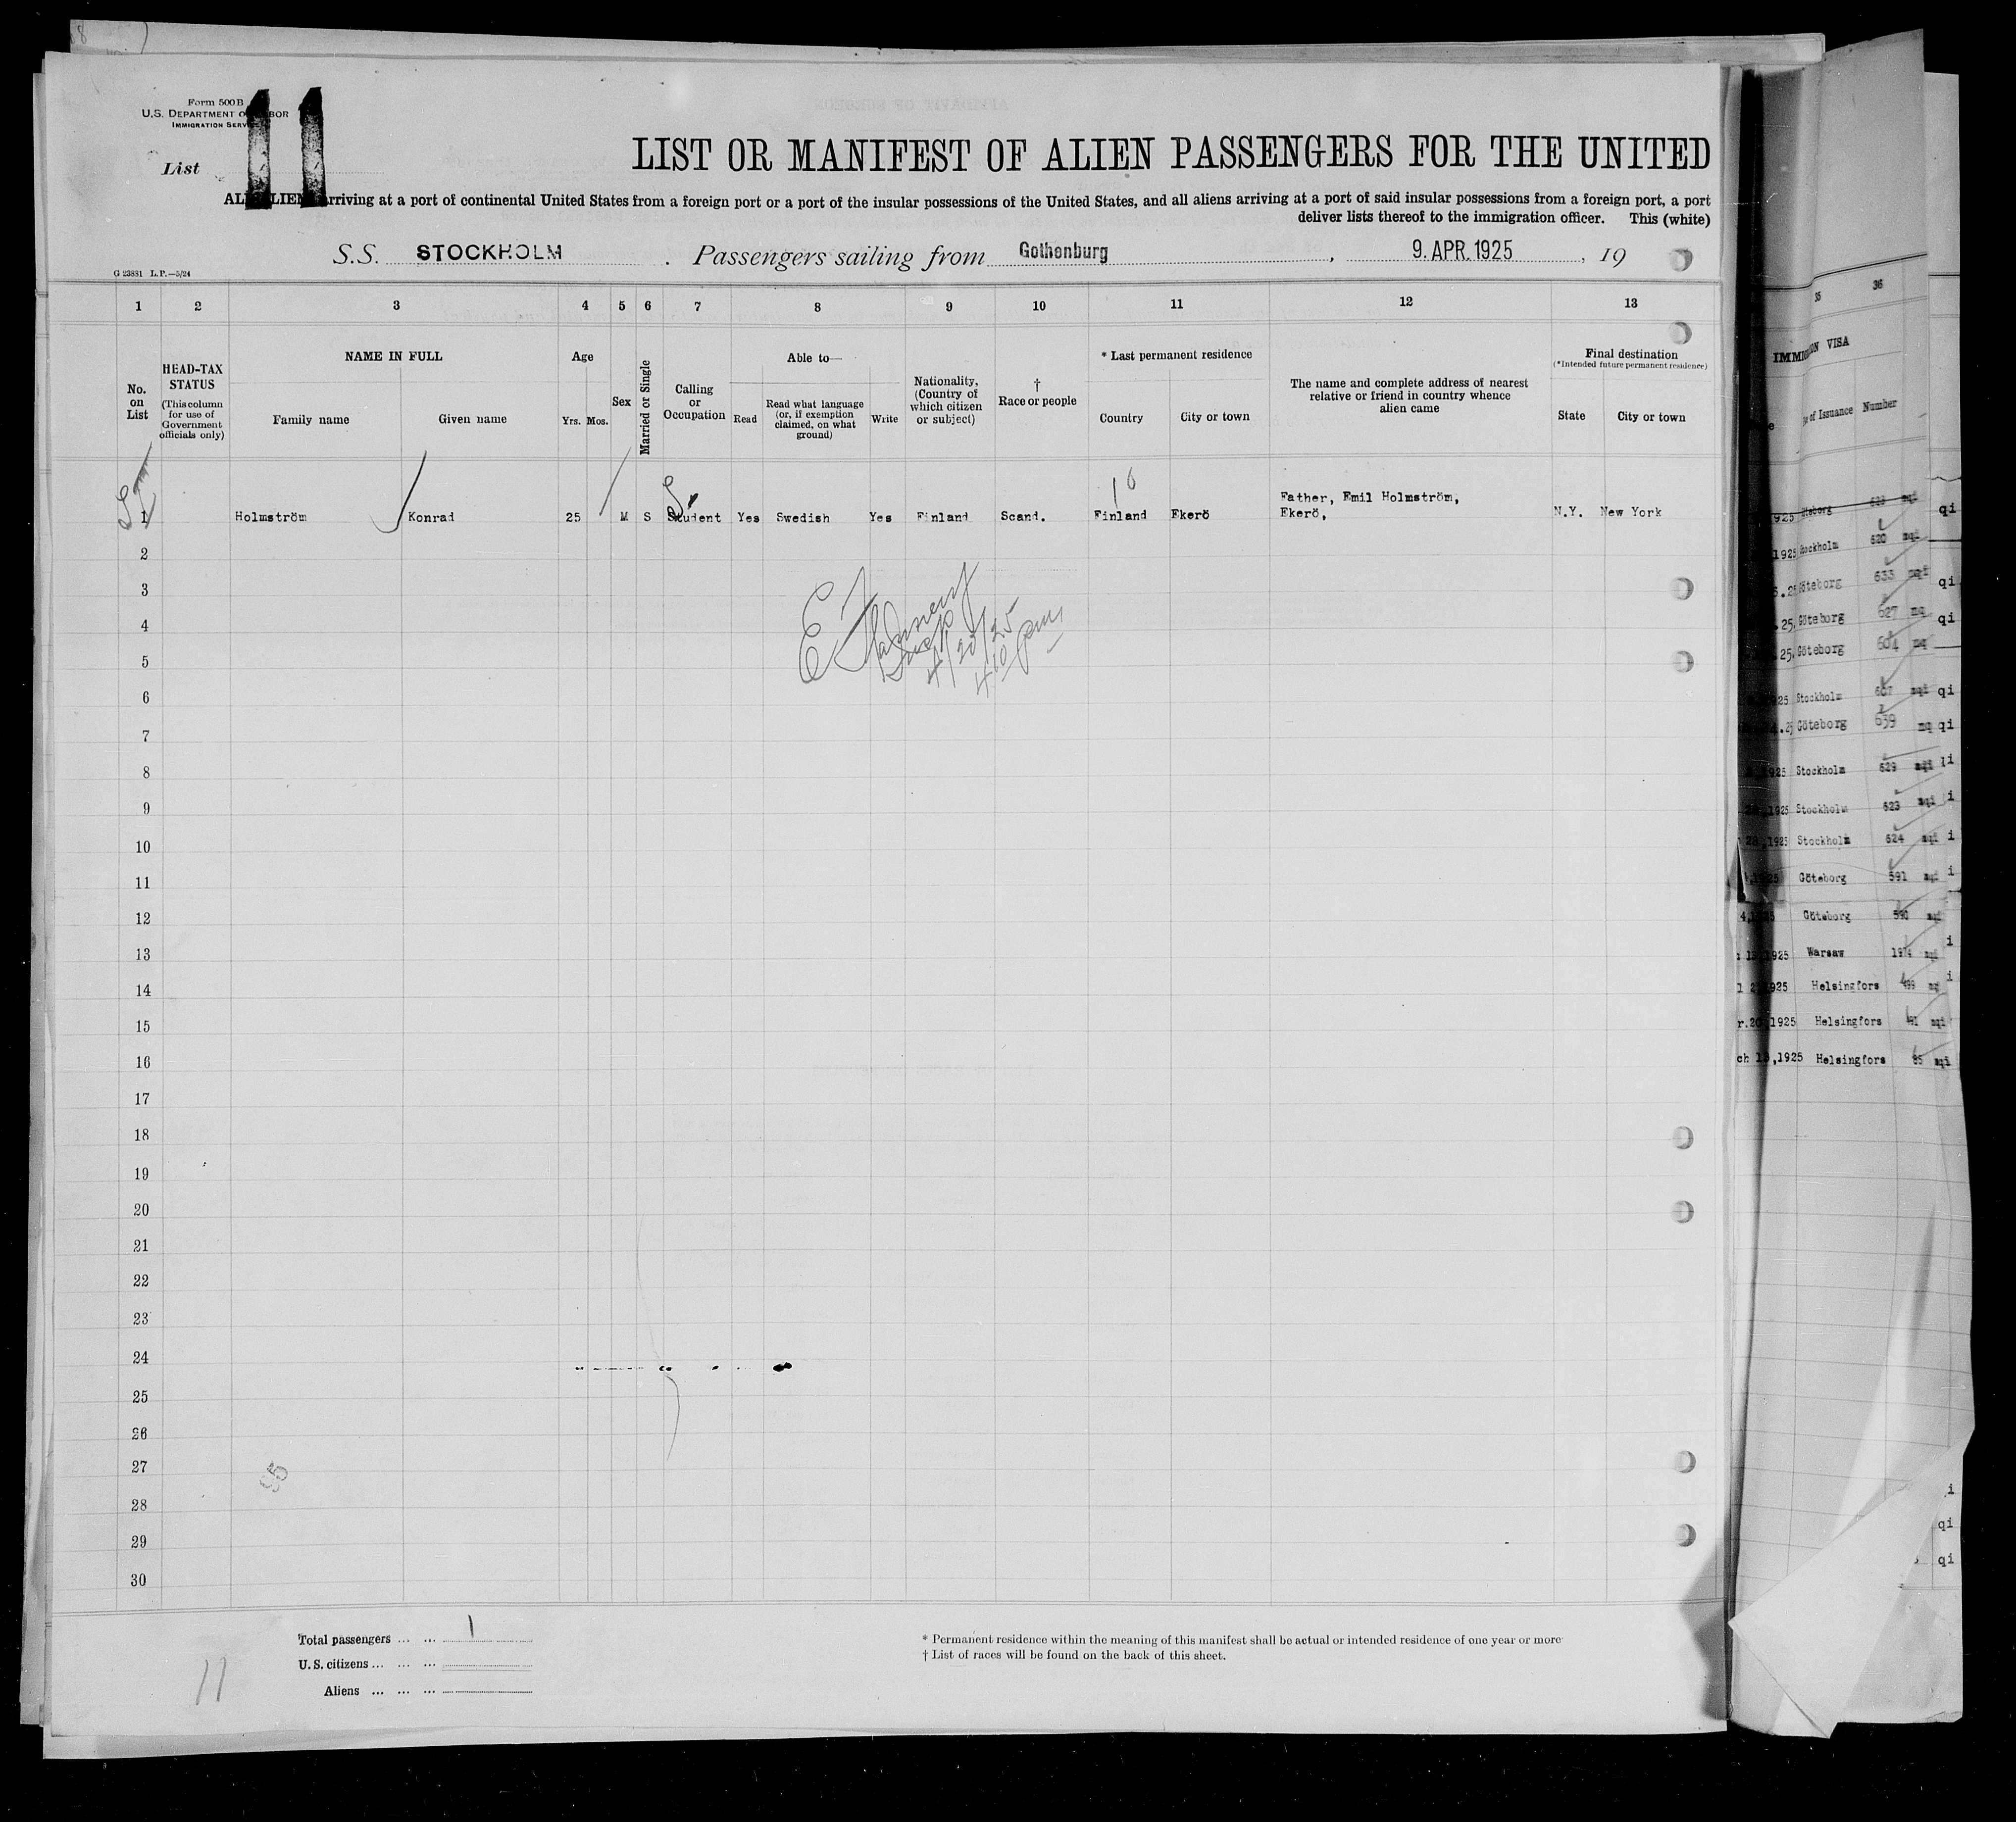 Form 500 B
U.S. DEPARTMENT OF LABOR
IMMIGRATION SERVICE
List 11
LIST OR MANIFEST OF ALIEN PASSENGERS FOR THE UNITED
ALL ALIENS arriving at a port of continental United States from a foreign port or a port of the insular possessions of the United States, and all aliens arriving at a port of said insular possessions from a foreign port, a port
deliver lists thereof to the immigration officer. This (white)
S.S. STOCKHOLM . Passengers sailing from Gothenburg , 9. APR. 1925 , 19
G 23881 L.P.—5/24
1 2 3 4 5 6 7 8 9 10 11 12 13
No. on List
HEAD-TAX STATUS
(This column for use of Government officials only)
NAME IN FULL
Family name Given name
Age
Yrs. Mos.
Sex
Married or Single
Calling or Occupation
Able to—
Read
Read what language (or, if exemption claimed, on what ground)
Write
Nationality, (Country of which citizen or subject)
† Race or people
* Last permanent residence
Country City or town
The name and complete address of nearest relative or friend in country whence alien came
Final destination
(*Intended future permanent residence)
State City or town
Father, Emil Holmström,
1 Holmström Konrad 25 M S Student Yes Swedish Yes Finland Scand. Finland Ekerö Ekerö, N.Y. New York
10
2
3
4
5
4/20/25
4 10 pm
6
7
8
9
10
11
12
13
14
15
16
17
18
19
20
21
22
23
24
25
26
27
28
29
30
95
Total passengers ... ... 1
U.S. citizens ... ... ...
Aliens ... ... ...
11
* Permanent residence within the meaning of this manifest shall be actual or intended residence of one year or more
† List of races will be found on the back of this sheet.
35 36
IMMIGRATION VISA
of Issuance Number
1925 Göteborg 628 nqi qi
1925 Stockholm 620 nqi
Göteborg 633 nqi qi
25, Göteborg 627 nq qi
25, Göteborg 604 nq
925 Stockholm 607 nqi qi
Göteborg 639 nq qi
925 Stockholm 629 nqi
,1925 Stockholm 623 nqi i
28,1925 Stockholm 624 nqi i
Göteborg 591 nqi i
Göteborg 590 nqi
1925 Warsaw 1974 nqi i
1925 Helsingfors nq i
r.20,1925 Helsingfors nqi
ch 13,1925 Helsingfors 85 nqi
i
qi
qi